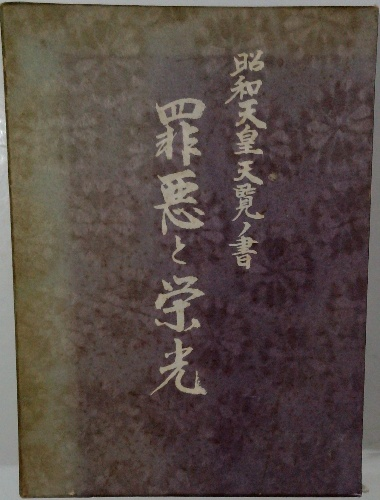 昭和天皇天覧ノ書
罪悪と栄光